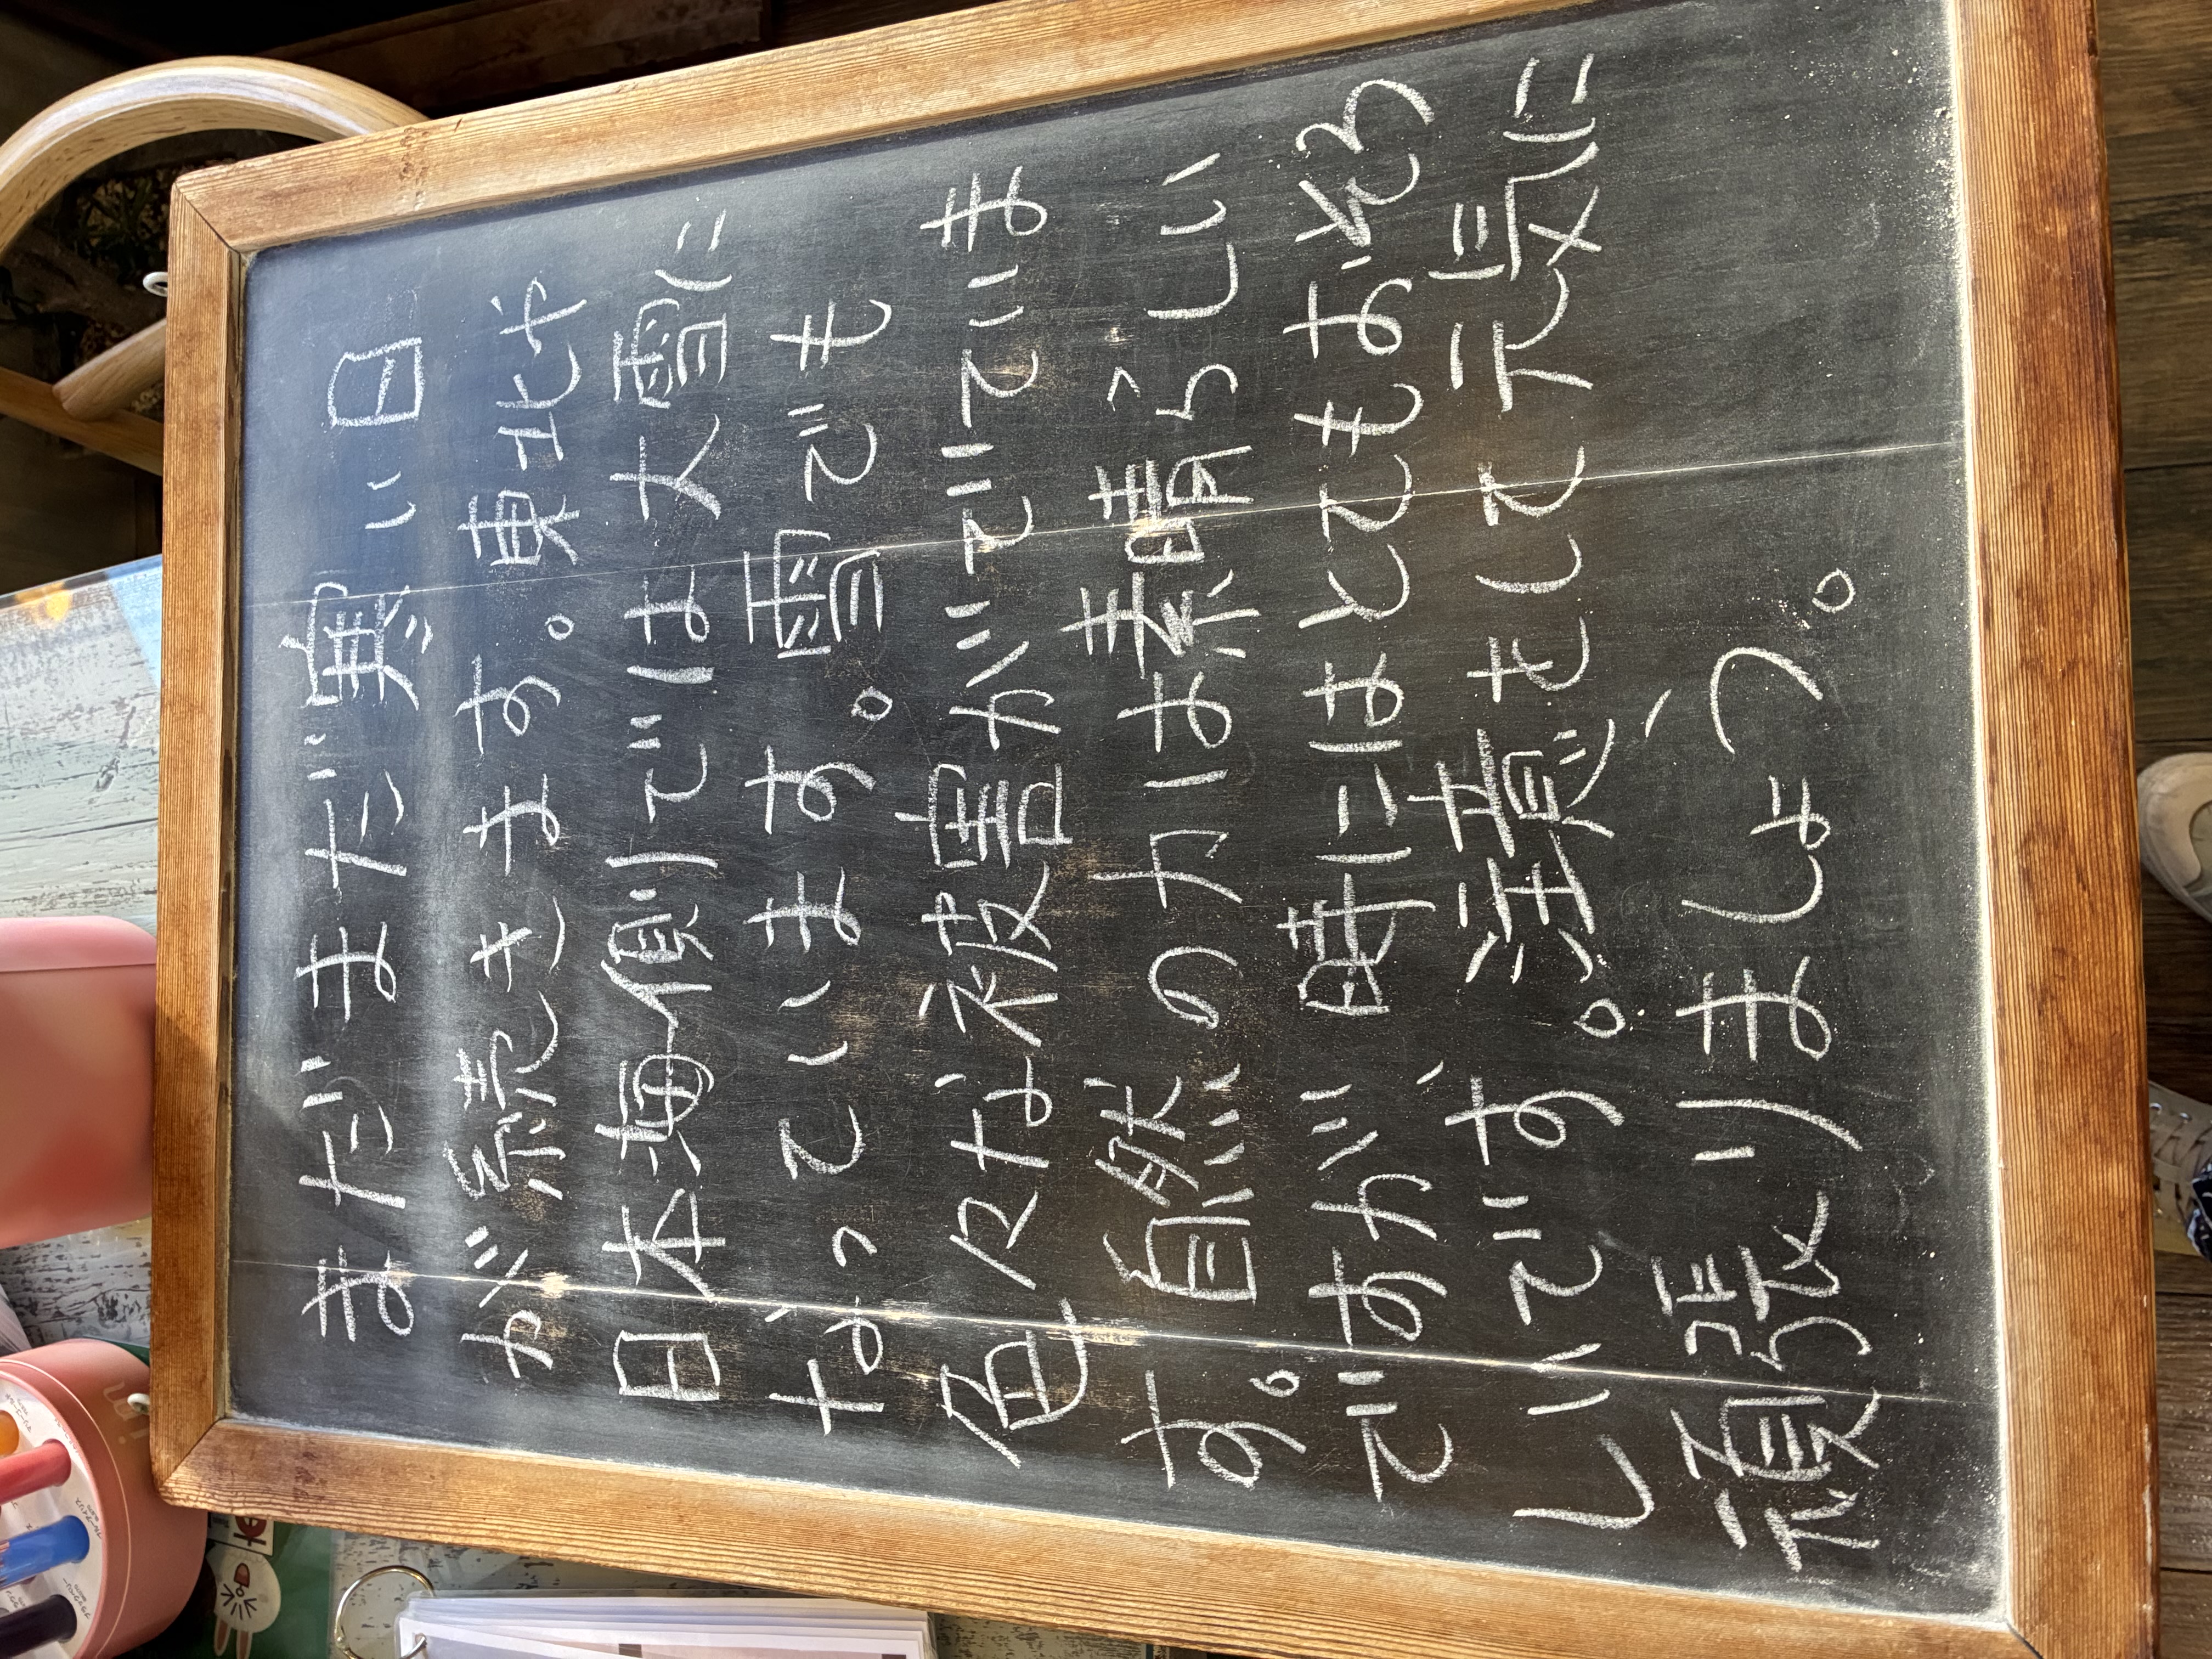 まだまだ寒い日
が続きます。東北や
日本海側では大雪に
なっています。雪でも
色々な被害がでていま
す。自然の力は素晴らしい
ですが、時にはとてもおそろ
しいです。注意をして元気に
頑張りましょう。